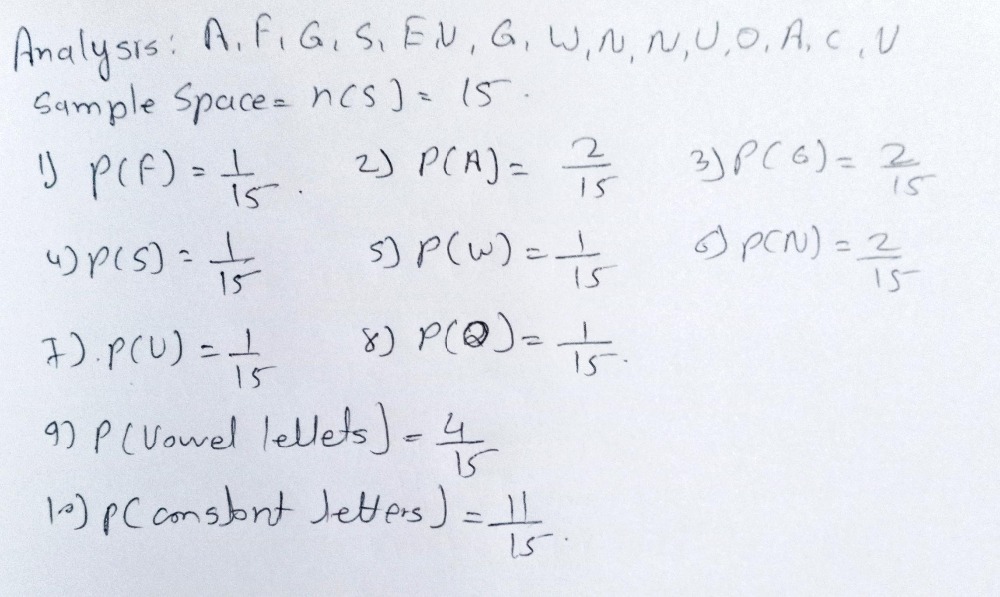 Analysis: A, F, G, S, E, U, G, W, N, N, U, O, A, C, U
Sample Space = n(S) = 15.
1) P(F) = 1/15. 2) P(A) = 2/15 3) P(G) = 2/15
4) P(S) = 1/15 5) P(W) = 1/15 6) P(N) = 2/15
7). P(U) = 1/15 8) P(Q) = 1/15.
9) P(Vowel lellets) = 4/15
10) P(constont letters) = 11/15.